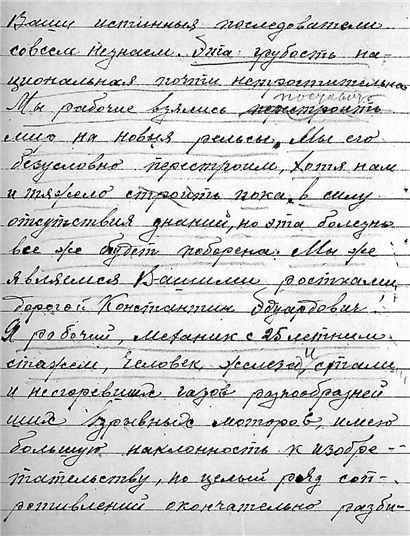 Ваши истинныя последователи
совсем незнаем. Эта грубость на-
циональная почти непростительна
Мы рабочие взялись построить
мир на новыя рельсы. Мы его
безусловно перестроим, хотя нам
и тяжело строить пока, в силу
отсутствия знаний, но эта болезнь
все же будет поборена. Мы же
являемся Вашими ростками,
дорогой Константин Эдуардович!
Я рабочий, механик с 25 летним
стажем, человек железа и стали
и несгоревших газов разнообразней
ших взрывных моторов, имею
большую наклонность к изобре-
тательству, но целый ряд соп-
ротивлений окончательно разби-